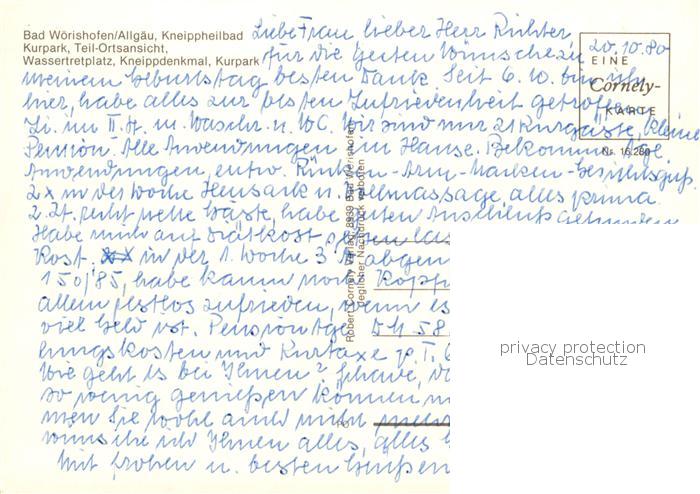 Bad Wörishofen/Allgäu, Kneippheilbad
Kurpark, Teil-Ortsansicht,
Wassertretplatz, Kneippdenkmal, Kurpark
20.10.80
EINE
Cornely-
KARTE
Nr. 16 280
Liebe Frau, lieber Herr Richter,
für die guten Wünsche zu
meinem Geburtstag besten Dank. Seit 6.10. bin ich
hier, habe alles zur besten Zufriedenheit getroffen.
Zi. im II. St. m. Waschr. u. WC. Wir sind nur 21 Kurgäste, kleine
Pension. Alle Anwendungen im Hause. Bekomme tgl.
Anwendungen, entw. Rücken- Arm- Nacken- Gesichtsguß
2x in der Woche Heusack u. Vollmassage, alles prima.
2. Zt. recht nette Gäste, habe guten Anschluß gefunden
Habe mich auf Diätkost
Kost. in der 1. Woche 3
150/85, habe kaum noch Kopf
allem restlos zufrieden, wenn es
viel Geld ist. Pensionstge. 54 58
lungskosten und Kurtaxe p. T. 6
Wie geht es bei Ihnen?
so wenig genießen können
men Sie wohl auch nicht mehr
wünsche ich Ihnen alles, alles
Mit frohen u. besten Grüßen
Robert Cornely Verlag, 8939 Bad Wörishofen
Jeglicher Nachdruck verboten
privacy protection
Datenschutz